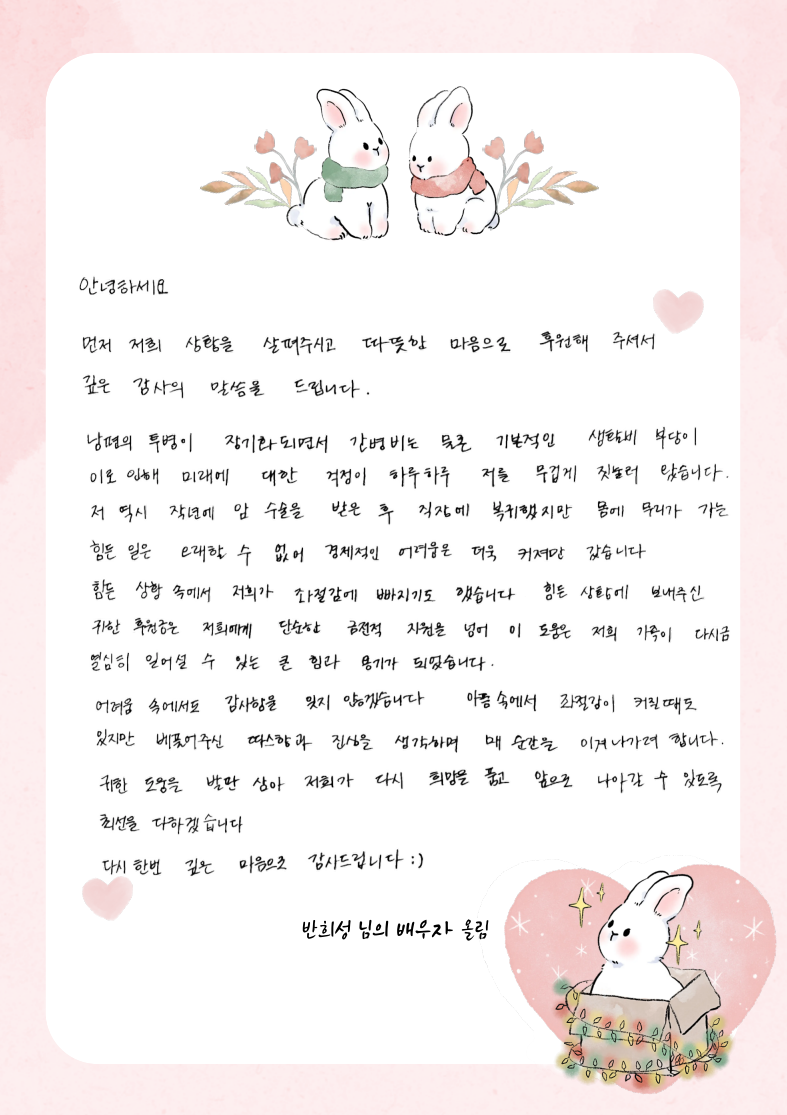 안녕하세요
먼저 저희 상황을 살펴주시고 따뜻한 마음으로 후원해 주셔서
깊은 감사의 말씀을 드립니다.
남편의 투병이 장기화되면서 간병비는 물론 기본적인 생활비 부담이
이로 인해 미래에 대한 걱정이 하루하루 저를 무겁게 짓눌러 왔습니다.
저 역시 작년에 암 수술을 받은 후 직장에 복귀했지만 몸에 무리가 가는
힘든 일은 오래할 수 없어 경제적인 어려움은 더욱 커져만 갔습니다
힘든 상황 속에서 저희가 좌절감에 빠지기도 했습니다 힘든 상황에 보내주신
귀한 후원금은 저희에게 단순한 금전적 지원을 넘어 이 도움은 저희 가족이 다시금
열심히 일어설 수 있는 큰 힘과 용기가 되었습니다.
어려움 속에서도 감사함을 잊지 않겠습니다 아픔 속에서 좌절감이 커질때도
있지만 베풀어주신 따스함과 진심을 생각하며 매 순간을 이겨나가려 합니다.
귀한 도움을 발판 삼아 저희가 다시 희망을 품고 앞으로 나아갈 수 있도록
최선을 다하겠습니다
다시 한번 깊은 마음으로 감사드립니다 :)
반희성 님의 배우자 올림